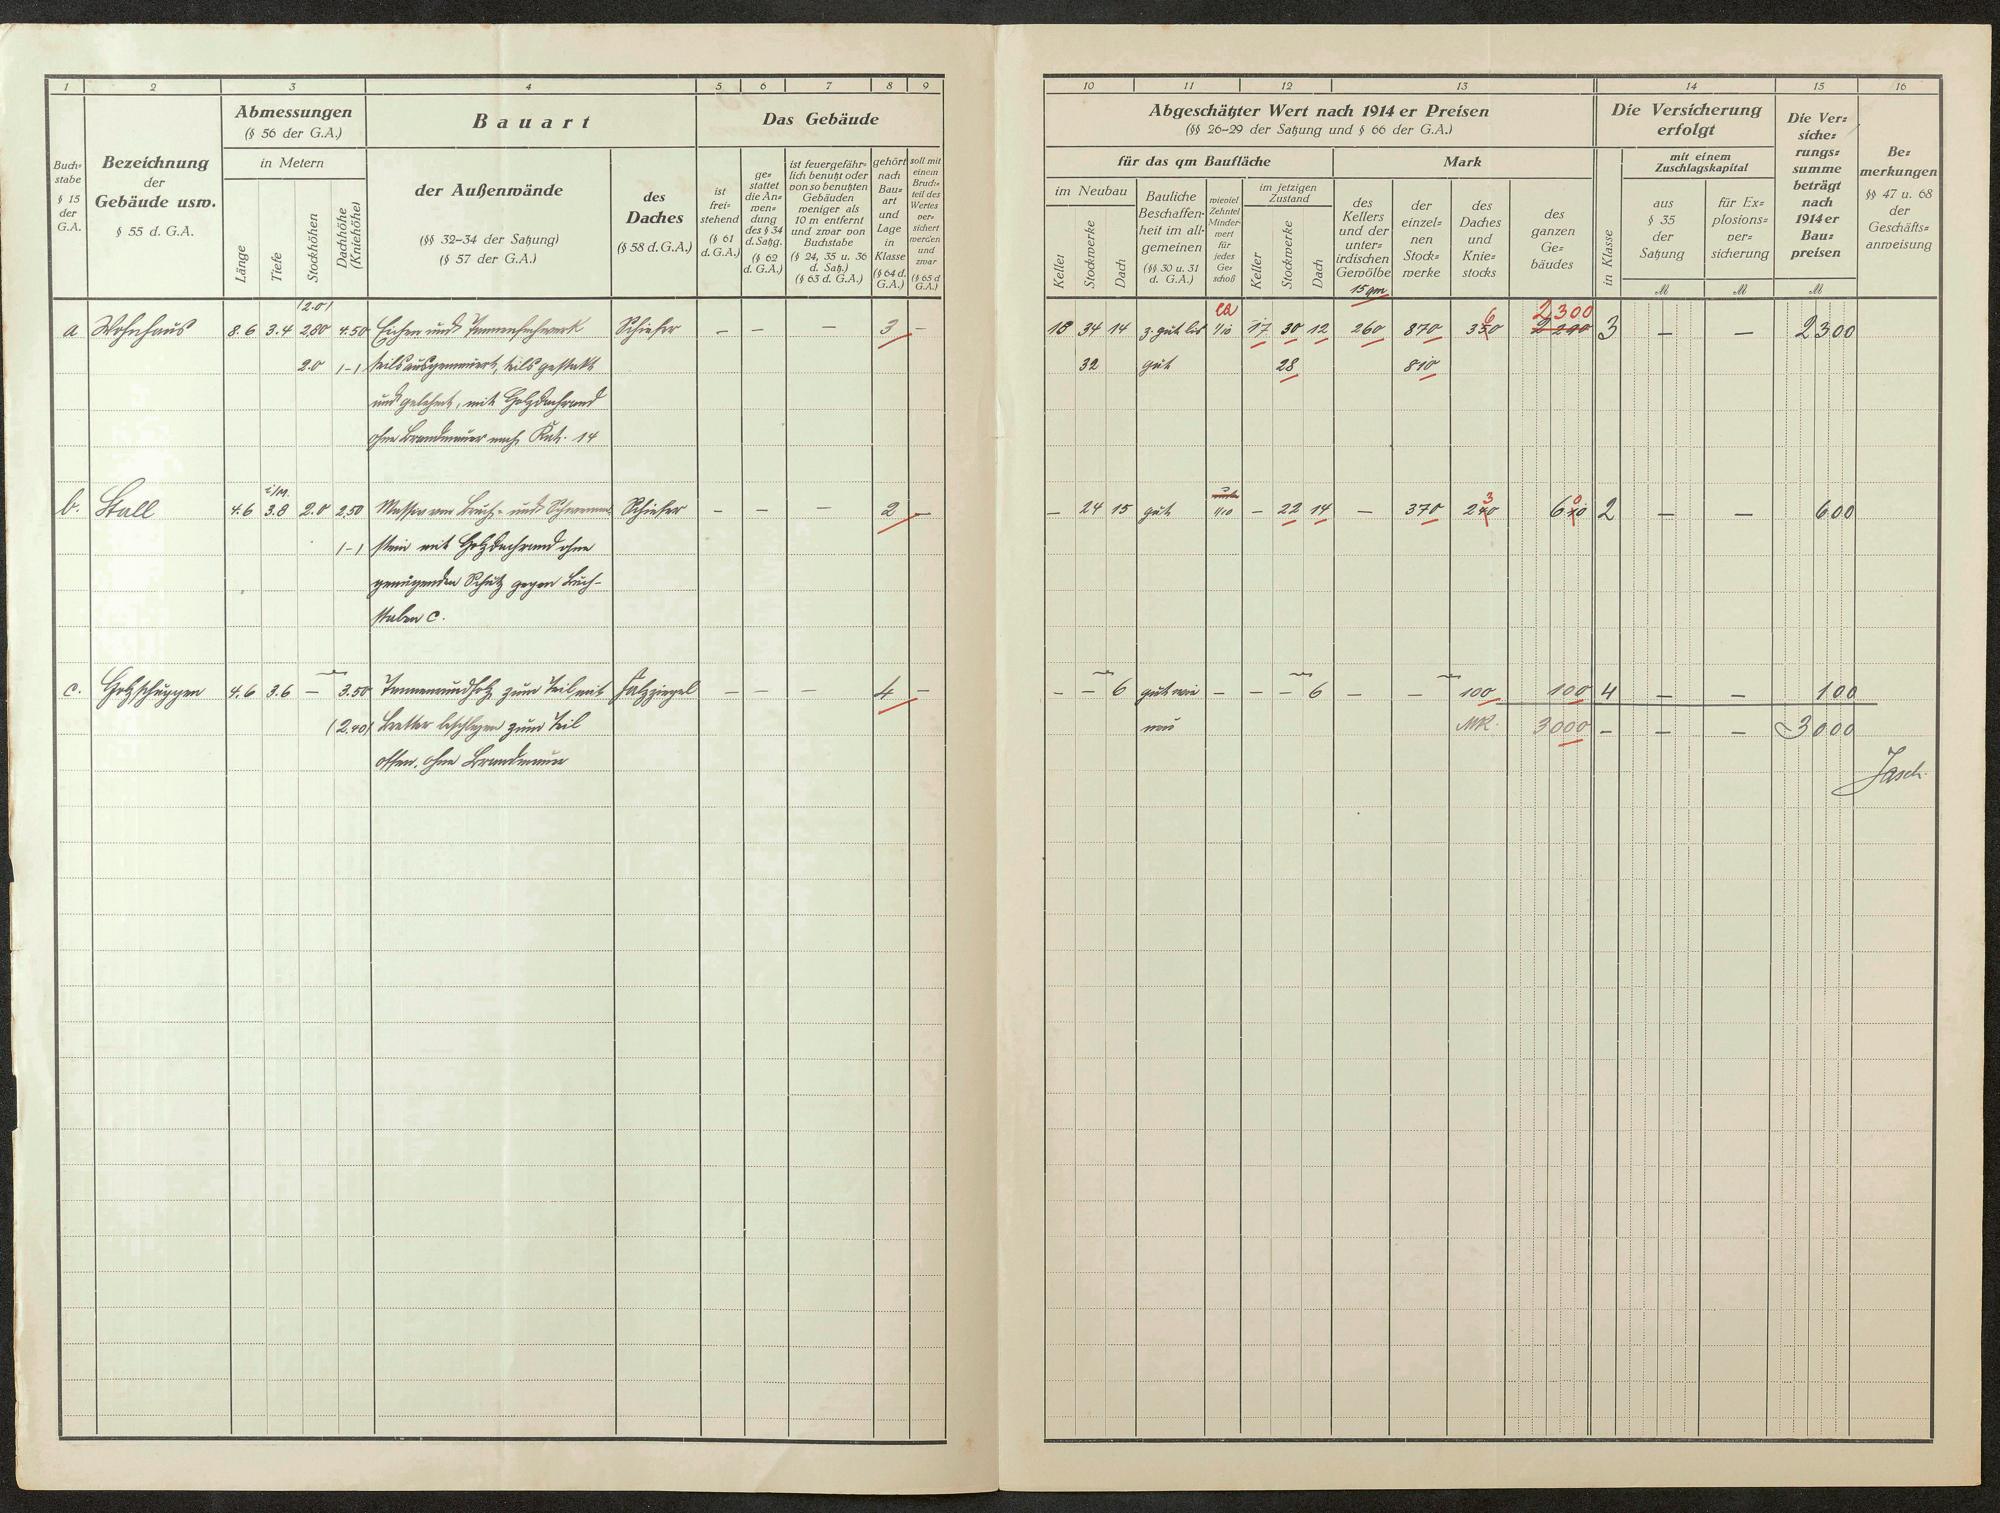 1 2 3 4 5 6 7 8 9
Buch=
stabe
§ 15
der
G.A.
Bezeichnung
der
Gebäude usw.
§ 55 d. G.A.
Abmessungen
(§ 56 der G.A.)
in Metern
Länge
Tiefe
Stockhöhen
Dachhöhe
(Kniehöhe)
Bauart
der Außenwände
(§§ 32-34 der Satzung)
(§ 57 der G.A.)
des
Daches
(§ 58 d. G.A.)
Das Gebäude
ist
frei=
stehend
(§ 61
d. G.A.)
ge=
stattet
die An=
wen=
dung
des § 34
d. Satzg.
(§ 62
d. G.A.)
ist feuergefähr=
lich benutzt oder
von so benutzten
Gebäuden
weniger als
10 m entfernt
und zwar von
Buchstabe
(§ 24, 35 u. 36
d. Satz.)
(§ 63 d. G.A.)
gehört
nach
Bau=
art
und
Lage
in
Klasse
(§ 64 d.
G.A.)
soll mit
einem
Bruch=
teil des
Wertes
ver=
sichert
werden
und
zwar
(§ 65 d
G.A.)
(2.0)
a Wohnhaus 8.6 3.4 2.80 4.50 Eichen und Tannenfachwerk Schiefer – – – 3 –
2.0 (-) teils ausgemauert, teils gestakt
und gelehmt, mit Holzdachrand
ohne Brandmauer nach Kat. 14
i/m.
b. Stall 4.6 3.8 2.0 2.50 Massiv von Bruch- und Schwemm- Schiefer – – – 2 –
(-) stein mit Holzdachrand ohne
genügenden Schutz gegen Buch-
staben c.
c. Holzschuppen 4.6 3.6 – 3.50 Tannenrundholz zum Teil mit Falzziegel – – – 4 –
(2.40) Bretter beschlagen zum Teil
offen, ohne Brandmauer
10 11 12 13 14 15 16
Abgeschätzter Wert nach 1914 er Preisen
(§§ 26-29 der Satzung und § 66 der G.A.)
für das qm Baufläche
Mark
im Neubau
Keller
Stockwerke
Dach
Bauliche
Beschaffen=
heit im all=
gemeinen
(§§ 30 u. 31
d. G.A.)
wieviel
Zehntel
Minder=
wert
für
jedes
Ge=
schoß
im jetzigen
Zustand
Keller
Stockwerke
Dach
des
Kellers
und der
unter=
irdischen
Gewölbe
15 qm
der
einzel=
nen
Stock=
werke
des
Daches
und
Knie=
stocks
des
ganzen
Ge=
bäudes
Die Versicherung
erfolgt
in Klasse
mit einem
Zuschlagskapital
aus
§ 35
der
Satzung
M
für Ex=
plosions=
ver=
sicherung
M
Die Ver=
siche=
rungs=
summe
beträgt
nach
1914 er
Bau=
preisen
M
Be=
merkungen
§§ 47 u. 68
der
Geschäfts=
anweisung
ca 6 2,300
34 14 z. gut bis 1/10 17 30 12 260 870 350 3 – – 2300
32 gut 28 810
3 0
– 24 15 gut 1/10 – 22 14 – 370 240 610 2 – – 600
– – 6 gut wie – – – 6 – – 100 100 4 – – 100
neu MR. 3000 – – – 3000
Jasch.